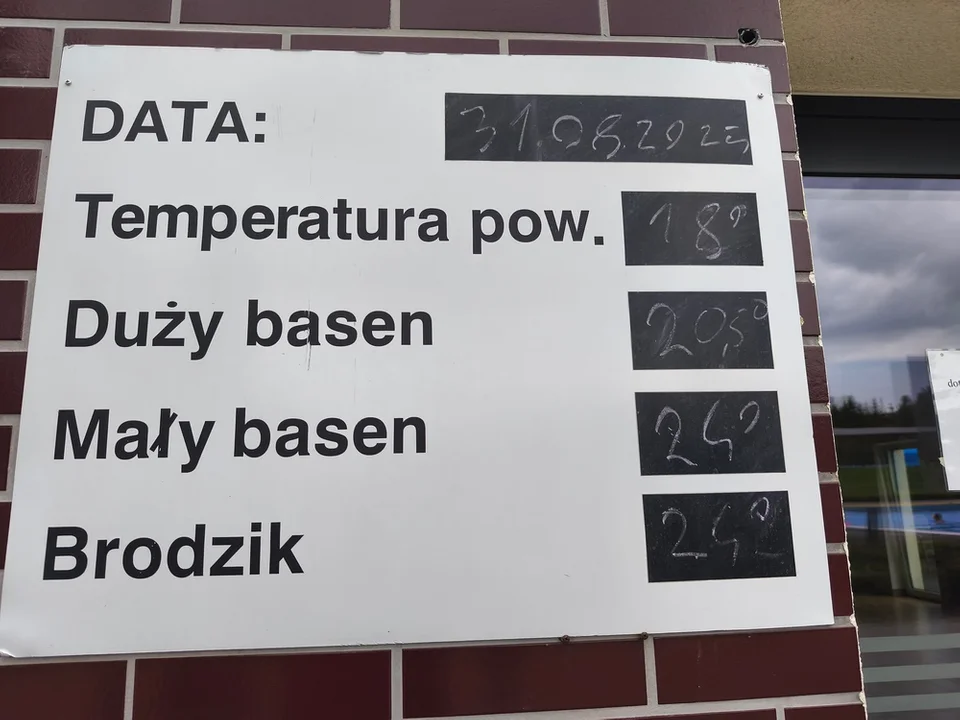 DATA: 31.08.2023
Temperatura pow. 18°
Duży basen 20,5°
Mały basen 24°
Brodzik 24°